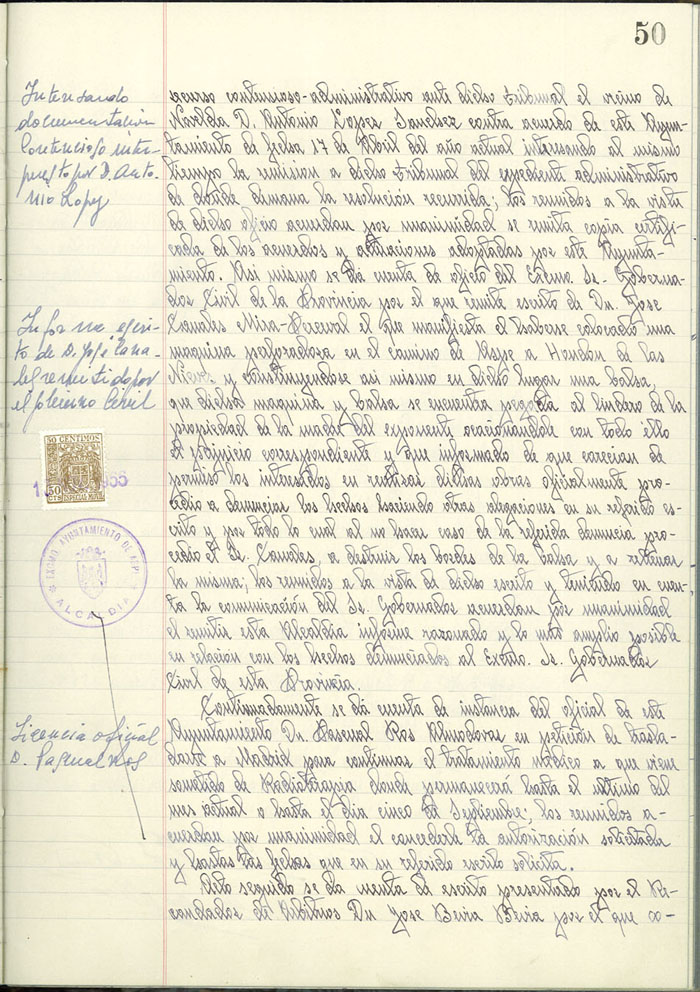 50
Interesando
documentación
Contencioso inter-
puesto por D. Anto-
nio Lopez
recurso contencioso-administrativo ante dicho Tribunal el vecino de
Novelda D. Antonio Lopez Sanchez contra acuerdo de este Ayun-
tamiento de fecha 17 de Abril del año actual interesando al mismo
tiempo la remision a dicho Tribunal del expediente administrativo
de donde dimana la resolución recurrida; los reunidos a la vista
de dicho oficio acuerdan por unanimidad se remita copia certifi-
cada de los acuerdos y actuaciones adoptadas por este Ayunta-
miento. Asi mismo se dá cuenta de oficio del Excmo. Sr. Goberna-
dor Civil de la Provincia por el que remite escrito de Dn. Jose
Canales Mira-Perceval el que manifiesta el haberse colocado una
maquina perforadora en el camino de Aspe a Hondon de las
Nieves y construyendose asi mismo en dicho lugar una balsa,
que dicha maquina y balsa se encuentra pegada al lindero de la
propiedad de la madre del exponente ocacionandole con todo ello
el perjuicio correspondiente y que informado de que carecian de
permiso los interesados en realizar dichas obras oficialmente pro-
cedio a denunciar los hechos haciendo otras alegaciones en su referido es-
crito y por todo lo cual al no hacer caso de la referida denuncia pro-
cedio el Sr. Canales a destruir los bordes de la balsa y a rellenar
la misma; los reunidos a la vista de dicho escrito y teniendo en cuen-
ta la comunicación del Sr. Gobernador acuerdan por unanimidad
el remitir esta Alcaldia informe razonado y lo más amplio posible
en relacion con los hechos denunciados al Excmo. Sr. Gobernador
Civil de esta Provincia.
Informe escri-
to de D. José Cana-
les remitido por
el Gobierno Civil
50 CENTIMOS
50
CTS
ESPECIAL MOVIL
EXCMO. AYUNTAMIENTO DE
ALCALDIA
Continuadamente se dá cuenta de instancia del oficial de este
Ayuntamiento Dn. Pascual Ros Almodovar en petición de trasla-
darse a Madrid para continuar el tratamiento médico a que viene
sometido de Radioterapia donde permanecerá hasta el ultimo del
mes actual o hasta el dia cinco de Septiembre; los reunidos a-
cuerdan por unanimidad el concederle la autorización solicitada
y hasta las fechas que en su referido escrito solicita.
Licencia oficial
D. Pascual Ros
Acto seguido se da cuenta de escrito presentado por el Re-
caudador de Arbitrios Dn. Jose Beviá Beviá por el que co-